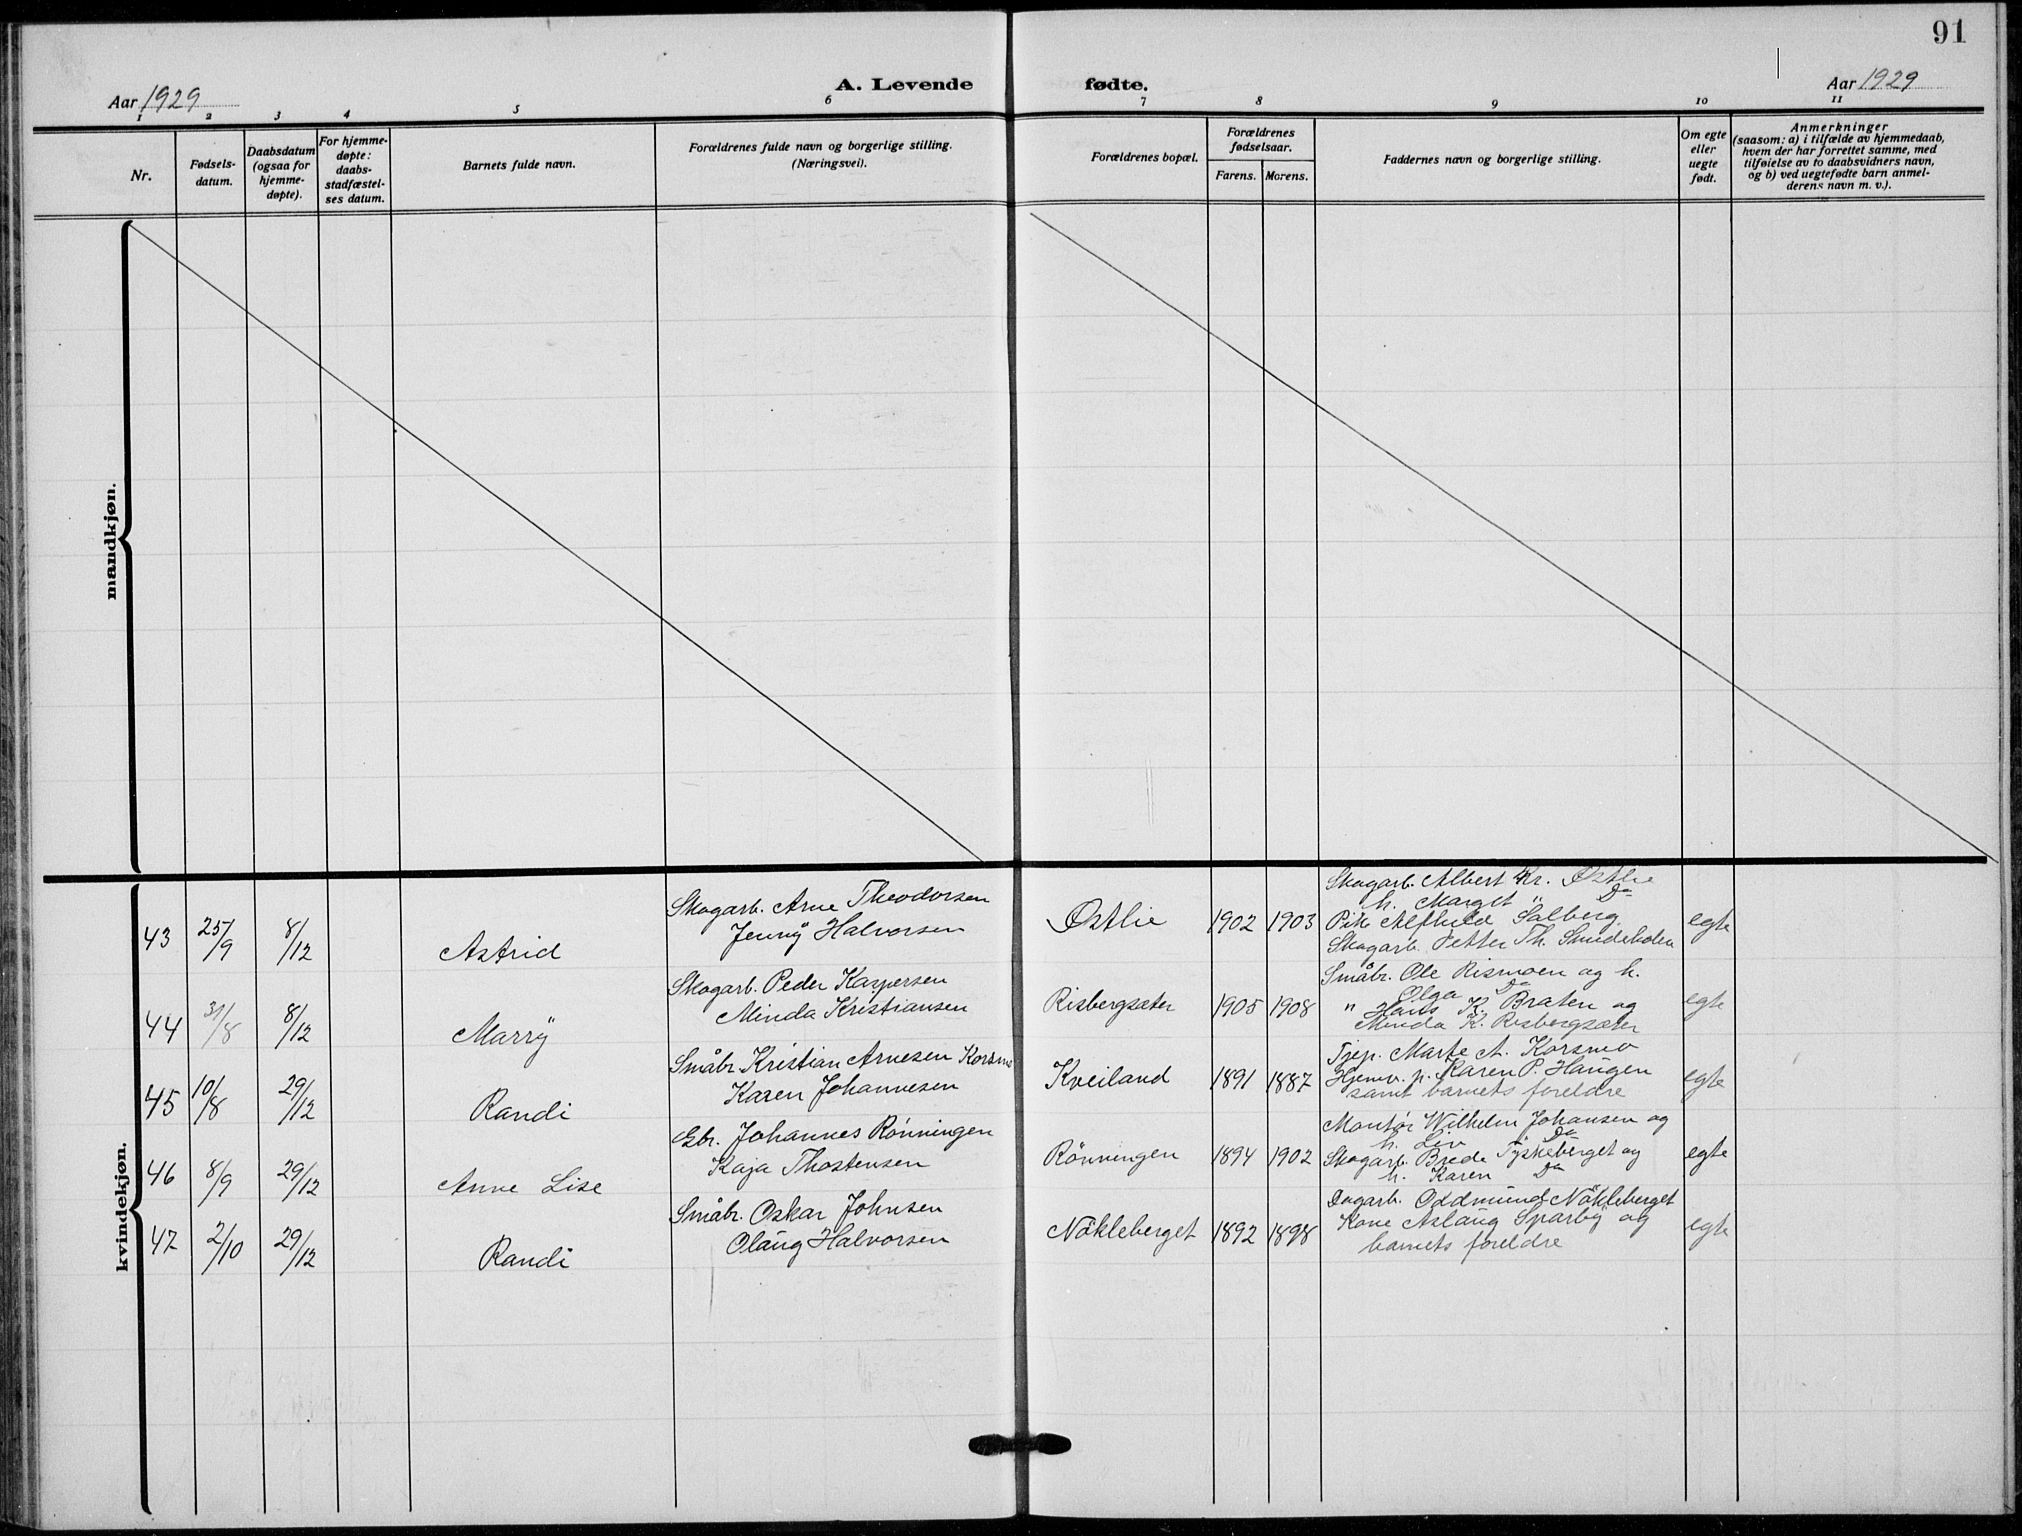 91
Aar 1929
A. Levende fødte.
Aar 1929
1 2 3 4 5 6 7 8 9 10 11
Nr.
Fødsels-
datum.
Daabsdatum
(ogsaa for
hjemme-
døpte).
For hjemme-
døpte:
daabs-
stadfæstel-
ses datum.
Barnets fulde navn.
Forældrenes fulde navn og borgerlige stilling.
(Næringsvei).
Forældrenes bopæl.
Forældrenes
fødselsaar.
Farens. Morens.
Faddernes navn og borgerlige stilling.
Om egte
eller
uegte
født.
Anmerkninger
(saasom: a) i tilfælde av hjemmedaab,
hvem der har forrettet samme, med
tilføielse av to daabsvidners navn,
og b) ved uegtefødte barn anmel-
derens navn m. v.).
mandkjøn.
kvindekjøn.
43 25/9 8/12 Astrid
Skogarb. Arne Theodorsen
Jenny Halvorsen
Østlie 1902 1903
Skogarb. Albert Kr. Østlie
h. Marget " Do
Pike Alfhild Salberg.
Skogarb. Petter Th. Smedeholen
egte
44 31/8 8/12 Marry
Skogarb. Peder Kaspersen
Minda Kristiansen
Risbergsæter 1905 1908
Småbr. Ole Rismoen og h.
Olga Do
" Hans K. Bråten og
Minda K. Risbergsæter
egte
45 10/8 29/12 Randi
Småbr. Kristian Arnesen Korsmo
Karen Johannesen
Kveiland 1891 1887
Tjep. Marte A. Korsmo
Hjemv. p. Karen P. Haugen
samt barnets foreldre
egte
46 8/9 29/12 Anne Lise
Gbr. Johannes Rönningen
Kaja Thostensen
Rönningen 1894 1902
Montør Wilhelm Johansen og
h. Liv Do
Skogarb. Brede Tyskeberget og
h. Karen Do
egte
47 2/10 29/12 Randi
Småbr. Oskar Johnsen
Olaug Halvorsen
Nökleberget 1892 1898
Dagarb. Oddmund Nökleberget
Kone Aslaug Sparby og
barnets foreldre
egte